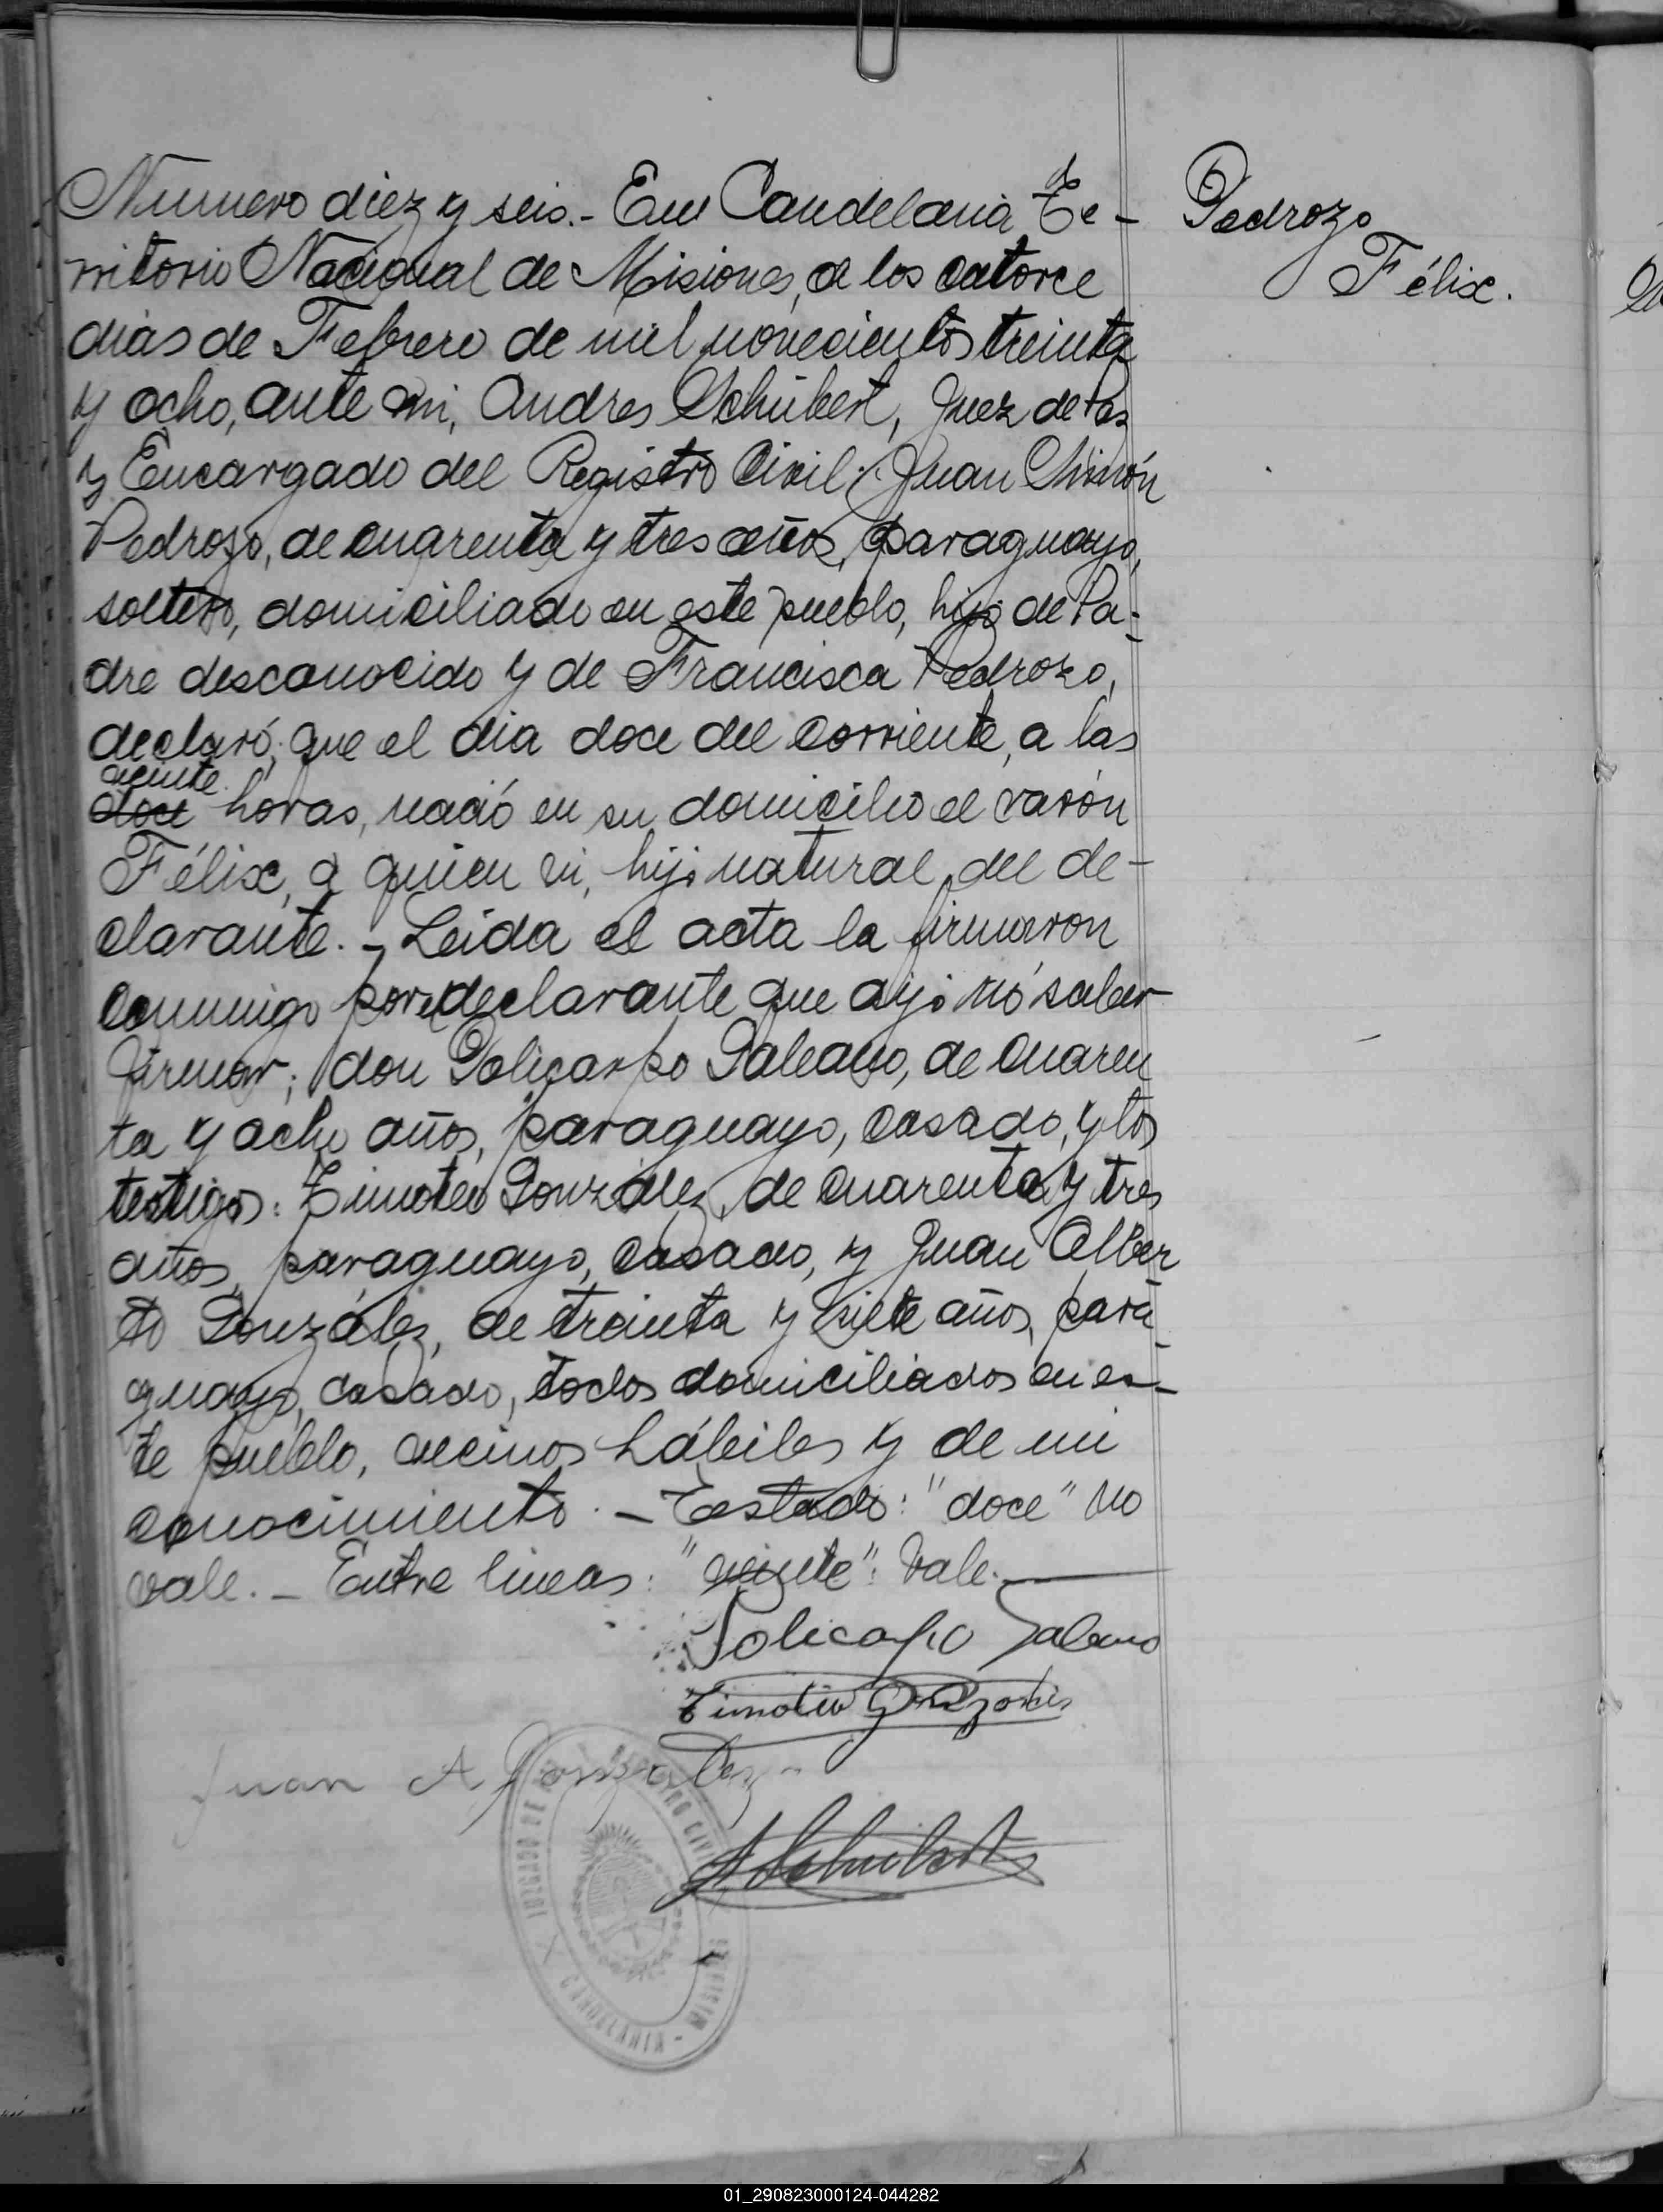 Numero diez y seis.- En Candelaria Te-
rritorio Nacional de Misiones, a los catorce
dias de Febrero de mil novecientos treinta
y ocho, ante mi, Andres Schubert, Juez de Paz
y Encargado del Registro Civil; Juan
Pedrozo, de cuarenta y tres años, paraguayo,
soltero, domiciliado en este pueblo, hijo de Pa-
dre desconocido y de Francisca Pedrozo,
declaró; que el dia doce del corriente, a las
veinte
doce horas, nació en su domicilio el varón
Félix, a quien vi, hijo natural del de-
clarante.- Leida el acta la firmaron
conmigo por el declarante que dijo nó saber
firmar; don Policarpo Galeano, de cuaren
ta y ocho años, paraguayo, casado, y los
testigos: Timoteo González, de cuarenta y tres
años, paraguayo, casado, y Juan Alber
to González, de treinta y siete años, para-
guayo, casado, todos domiciliados en es-
te pueblo, vecinos hábiles y de mi
conocimiento.- Testado: "doce" no
vale.- Entre lineas: "veinte": Vale.-
Policarpo Galeano
Timoteo Gonzalez
Juan A Gonzalez
A Schubert
REGISTRO CIVIL
CANDELARIA - MISIONES
Pedrozo
Félix.
01_290823000124-044282